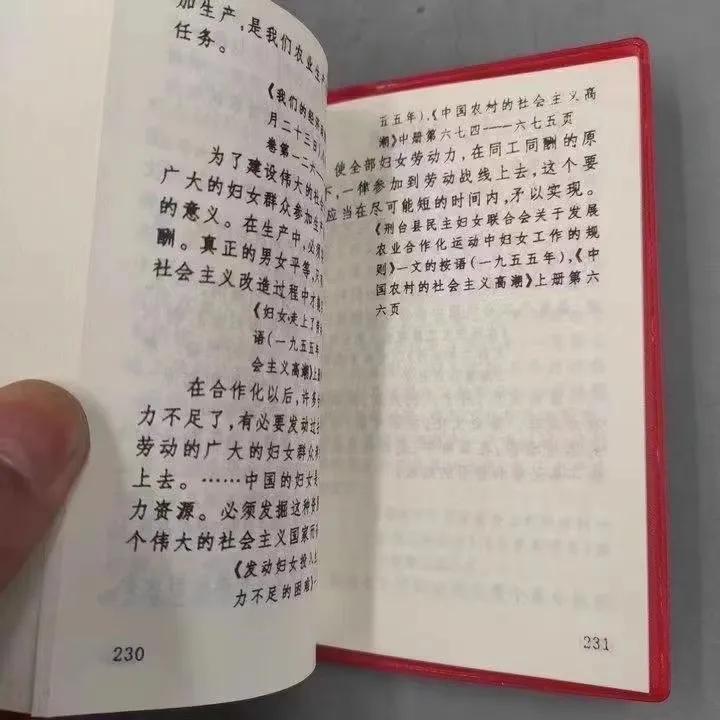 加生产,是我们农业生产
任务。
《我们的经济政
月二十三日)
卷第一二六
为了建设伟大的社会
广大的妇女群众参加生产
的意义。在生产中,必须
酬。真正的男女平等,只
社会主义改造过程中才能
《妇女走上了劳
语(一九五五年
会主义高潮》上
在合作化以后,许多
力不足了,有必要发动过去
劳动的广大的妇女群众
上去。……中国的妇女是
力资源。必须发掘这种资
个伟大的社会主义国家而
《发动妇女投入生
力不足的困难》一
230
五五年),《中国农村的社会主义高
潮》中册第六七四——六七五页
使全部妇女劳动力,在同工同酬的原
下,一律参加到劳动战线上去,这个要
应当在尽可能短的时间内,矛以实现。
《刑台县民主妇女联合会关于发展
农业合作化运动中妇女工作的规
则》一文的按语(一九五五年),《中
国农村的社会主义高潮》上册第六
六页
231